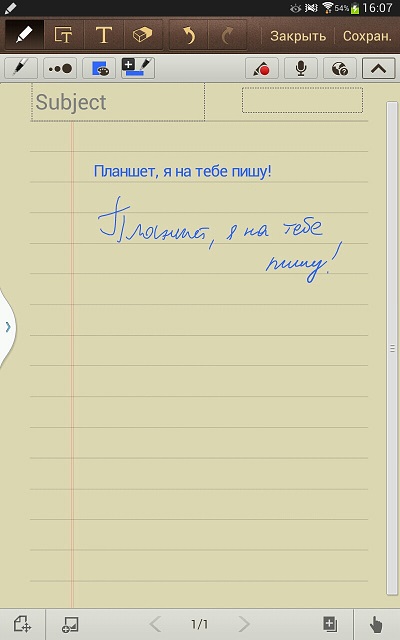 54% 16:07
T Закрыть Сохран.
Subject
Планшет, я на тебе пишу!
Планшет, я на тебе
пишу!
1/1